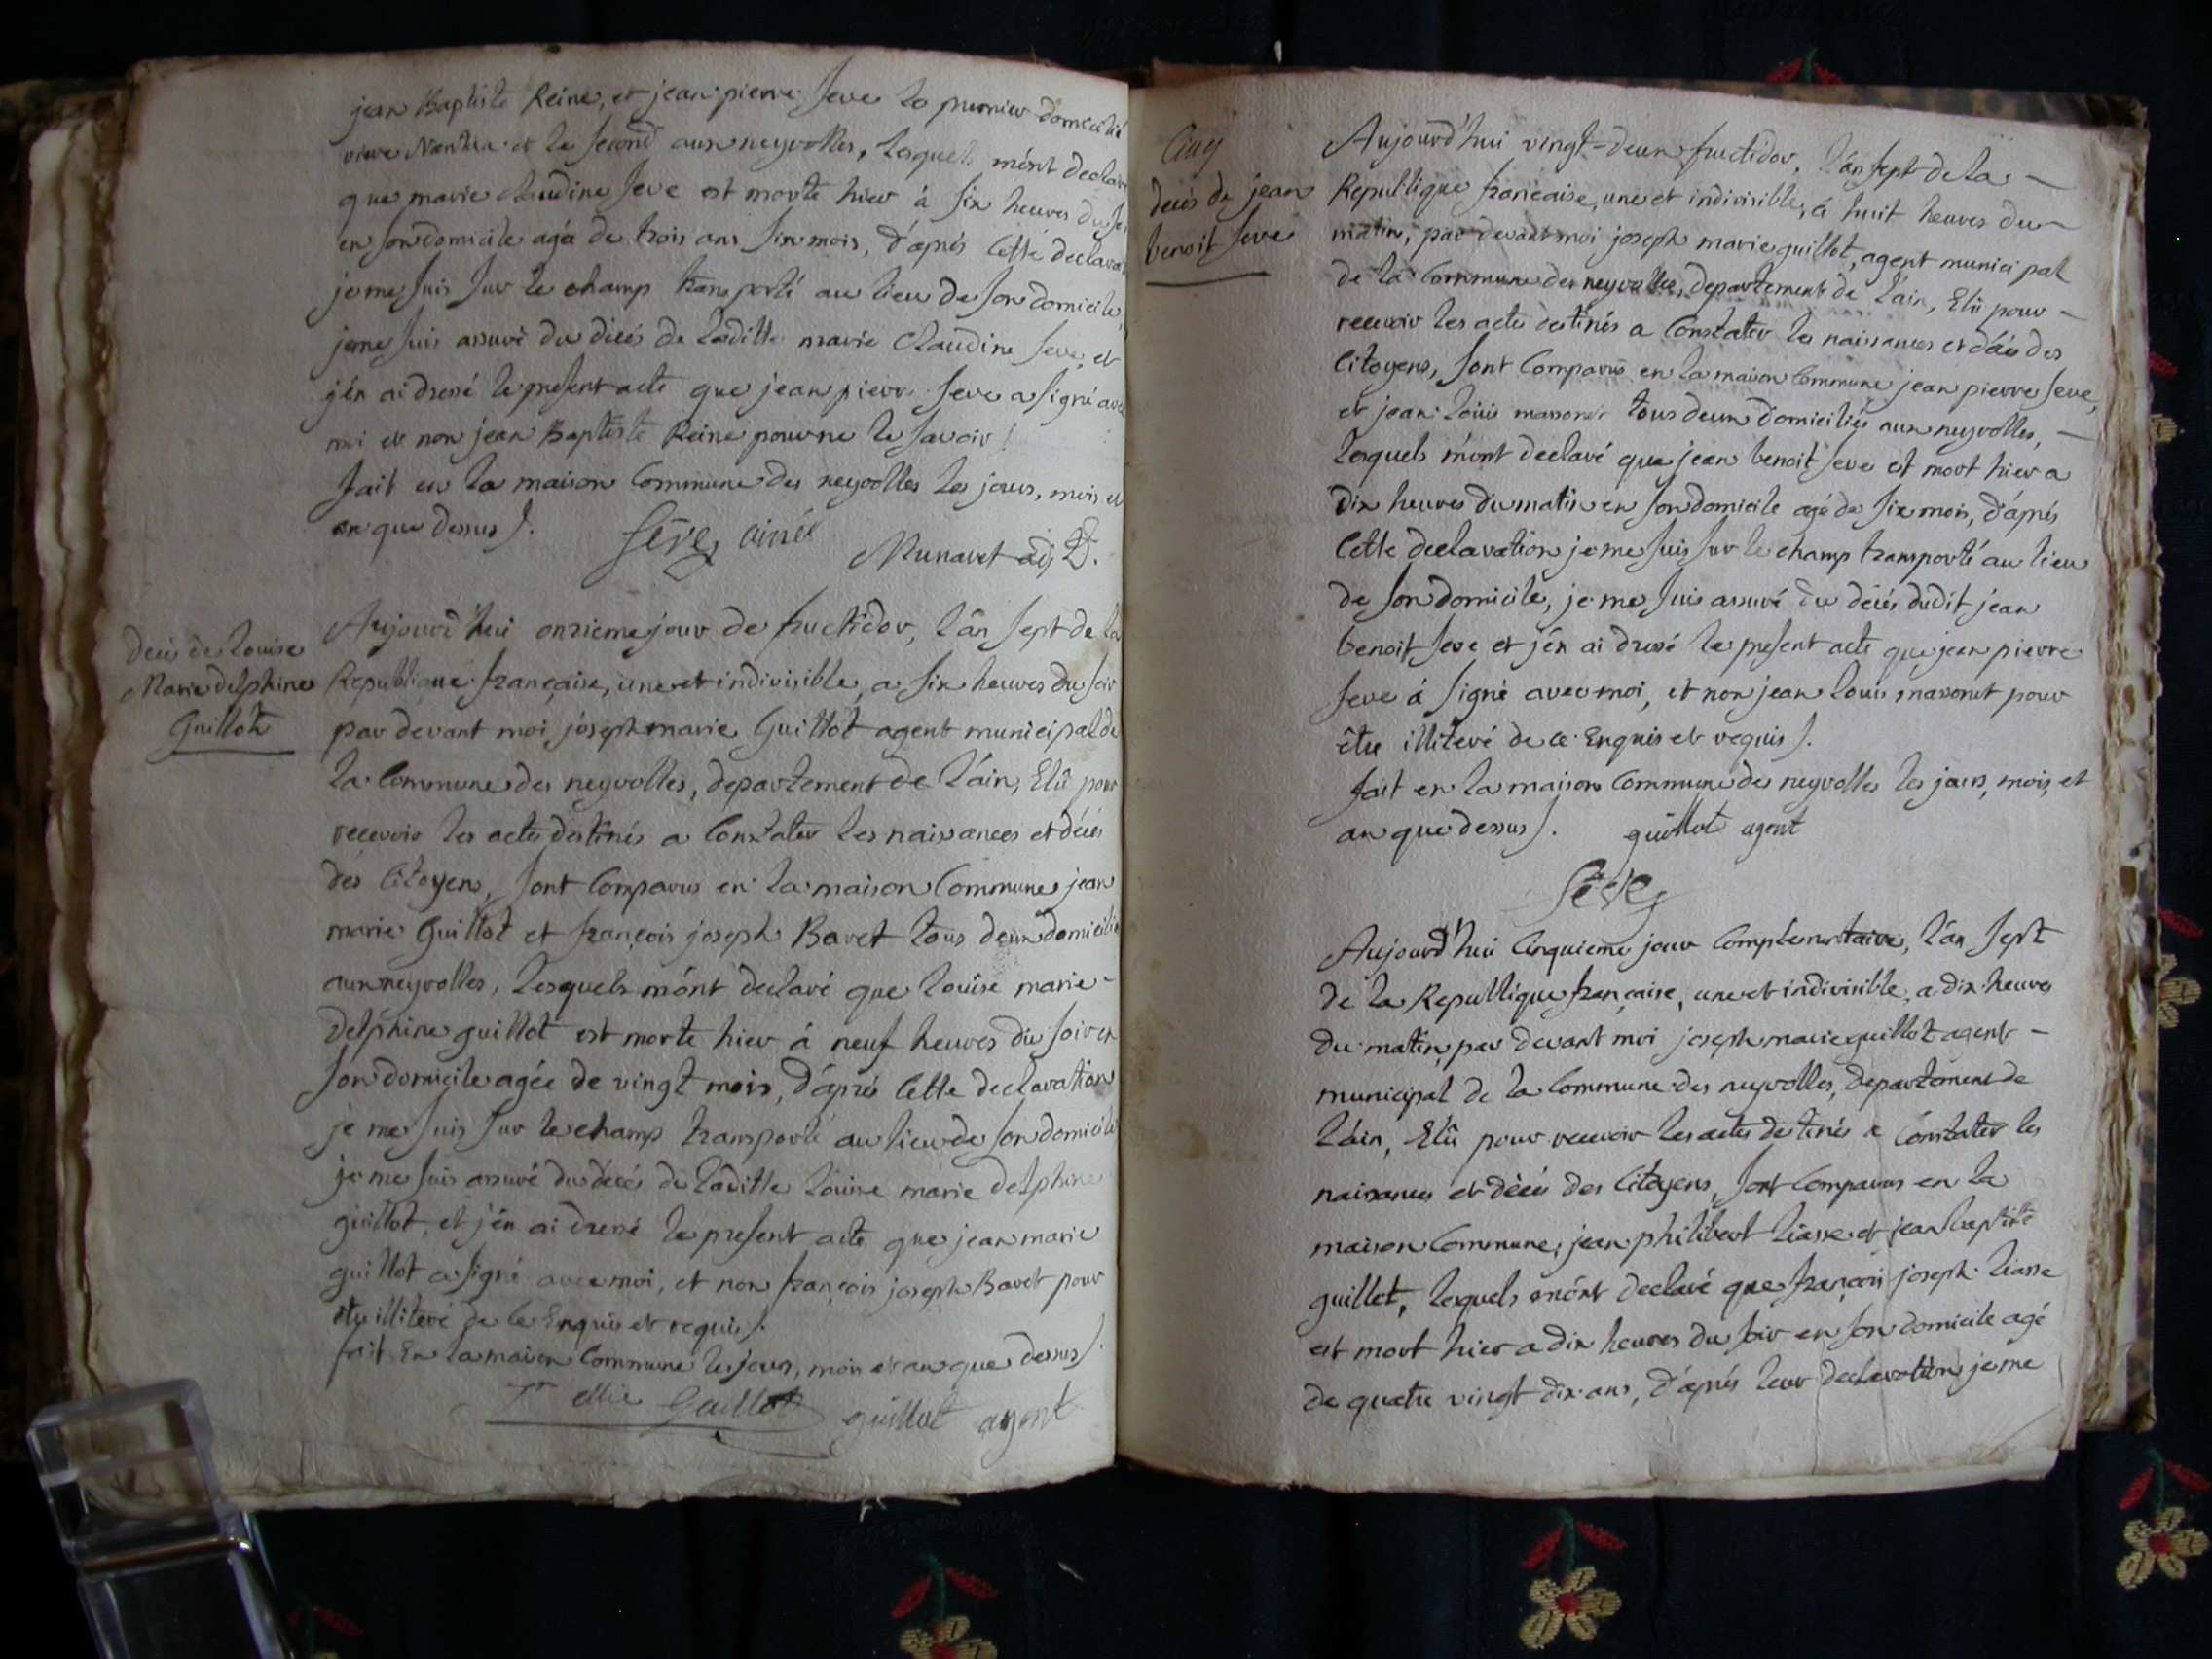 jean Baptiste Reine, et jean pierre seve le premier domicilié
Nantua et le second aux neyrolles, lesquels m'ónt declaré
que marie claudine seve est morte hier à six heures du soi
en son domicile agée de trois ans six mois, d'aprés cette declarat
je me suis sur le champ transporté au lieu de son domicile,
je me suis assuré du décés de laditte marie claudine seve, et
j'én ai dressé le present acte que jean pierre seve a signé avec
moi et non jean Baptiste Reine pour ne le savoir !
fait en la maison Commune des neyrolles les jours, mois et
an que dessus ∫.
seve ainé
Munaret adj
deces de louise
Marie delphine
Guillot
Aujourd'hui onzieme jour de fructidor, l'án sept de la
Republique française, une et indivisible, a six heures du soir
par devant moi joseph marie Guillot agent municipal de
la Commune des neyrolles, departement de l'áin, Elû pour
recevoir les actes destinés a Constater les naissances et décés
dés Citoyens, sont Comparus en la maison Commune jean
marie Guillot et françois joseph Baret tous deux domicilié
aux neyrolles, lesquels m'ónt declaré que louise marie -
Delphine guillot est morte hier á neuf heures du soir en
son domicile agée de vingt mois, d'áprés Cette declaration
je me suis sur le champ transporté au lieu de son domicile
je me suis assuré du décés de laditte louise marie delphine
guillot, et j'én ai dressé le present acte que jean marie
guillot a signé avec moi, et non françois joseph Baret pour
etre illiteré de ce Enquis et requis ∫.
fait En la maison Commune les jours, mois et an que dessus ∫.
Guillot guillot agent
Cinq
decés de jean
benoit seve
Aujourd'hui vingt=deux fructidor, l'án sept de la -
Republique francaise, une et indivisible, á huit heures du -
matin, par devant moi joseph marie guillot, agent municipal
de la Commune des neyrolles, departement de l'ain, Elû pour -
recevoir les actes destinés a Constater les naissances et décés des
Citoyens, sont Comparus en la maison Commune jean pierre seve,
et jean louis massonet tous deux domiciliés aux neyrolles, -
lesquels m'ónt declaré que jean benoit seve est mort hier a
dix heures du matin en son domicile agé de six mois, d'áprés
Cette declaration je me suis sur le champ transporté au lieu
de son domicile, je me suis assuré du décés dudit jean
benoit seve et j'én ai dressé le present acte que jean pierre
seve á signé avec moi, et non jean louis massonet pour
être illiteré de ce Enquis et requis ∫.
fait en la maison Commune des neyrolles les jours, mois, et
an que dessus ∫. guillot agent
seve
Aujourd'hui Cinquieme jour Complementaire, l'án sept
de la Republique française, une et indivisible, a dix heures
du matin, par devant moi joseph marie guillot agent -
municipal de la Commune des neyrolles, departement de
l'áin, Elû pour recevoir les actes destinés a Constater les
naissances et décés des Citoyens, sont Comparus en la
maison Commune, jean philibert liasse et jean baptiste
guillot, lesquels m'ónt declaré que françois joseph liasse
est mort hier a dix heures du soir en son domicile agé
de quatre vingt dix ans, d'áprés leur declaration je me